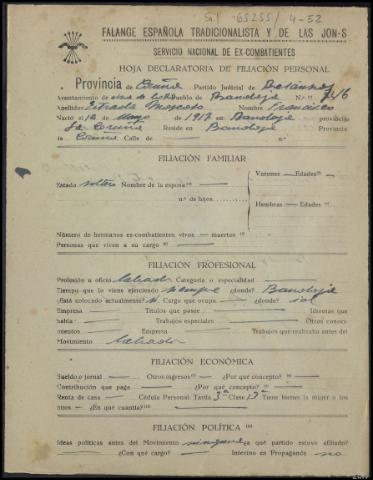 65255/4-52
FALANGE ESPAÑOLA TRADICIONALISTA Y DE LAS JON-S
SERVICIO NACIONAL DE EX-COMBATIENTES
HOJA DECLARATORIA DE FILIACIÓN PERSONAL
Provincia de Coruña Partido Judicial de Betanzos
Ayuntamiento de Pueblo de N.º 746
Apellidos Estrada Nombre Francisco
Nació el 12 de Mayo de 1917 en provincia
La Coruña Reside en Provincia
de Coruña Calle de n.º
FILIACIÓN FAMILIAR
Estado soltero Nombre de la esposa
Varones — Edades
n.º de hijos
Hembras — Edades
Número de hermanos ex-combatientes vivos — muertos
Personas que viven a su cargo
FILIACIÓN PROFESIONAL
Profesión u oficio labrador Categoría o especialidad
Tiempo que lo viene ejerciendo siempre ¿donde?
¿Está colocado actualmente? si Cargo que ocupa ¿donde? id
Empresa Títulos que posee Idiomas que
habla Trabajos especiales Otros conoci-
mientos Empresa Trabajos que realizaba antes del
Movimiento labrador
FILIACIÓN ECONÓMICA
Sueldo o jornal Otros ingresos ¿Por qué concepto?
Contribución que paga ¿Por qué concepto?
Renta de casa Cédula Personal: Tarifa 3ª Clase 13 Tiene bienes la mujer o los
hijos ¿En qué cuantía?
FILIACIÓN POLÍTICA
Ideas políticas antes del Movimiento ninguna ¿a qué partido estuvo afiliado?
¿Con qué cargo? Intervino en Propaganda no